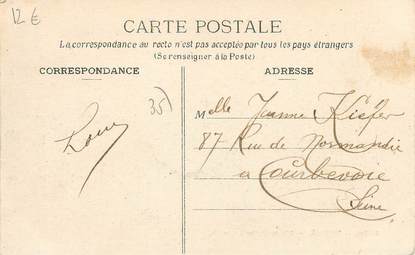 12 €
CARTE POSTALE
La correspondance au recto n'est pas acceptée par tous les pays étrangers
(Se renseigner à la Poste)
CORRESPONDANCE
ADRESSE
35)
Melle Jeanne Kiéfer
87 Rue de Normandie
a Courbevoie
Seine